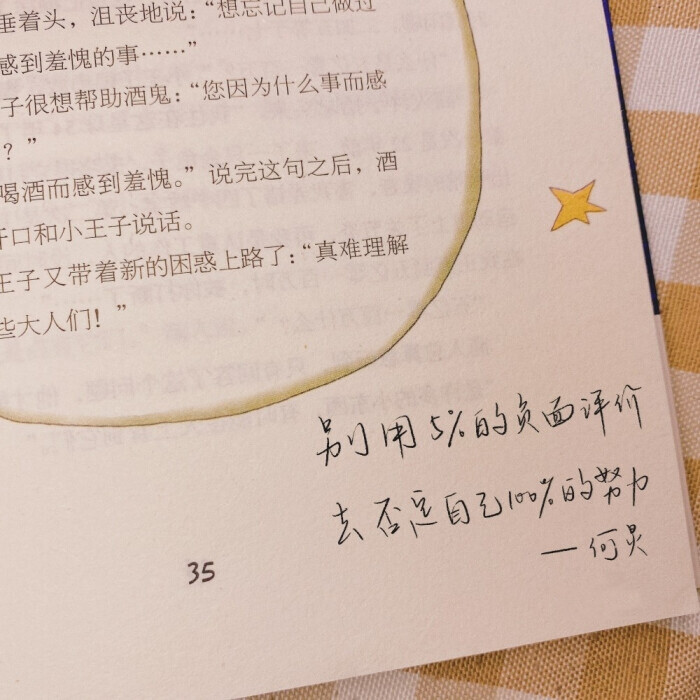 垂着头，沮丧地说：“想忘记自己做过
感到羞愧的事……”
子很想帮助酒鬼：“您因为什么事而感
？”
喝酒而感到羞愧。”说完这句之后，酒
开口和小王子说话。
王子又带着新的困惑上路了：“真难理解
些大人们！”
别用5%的负面评价
去否定自己100%的努力
—何炅
35